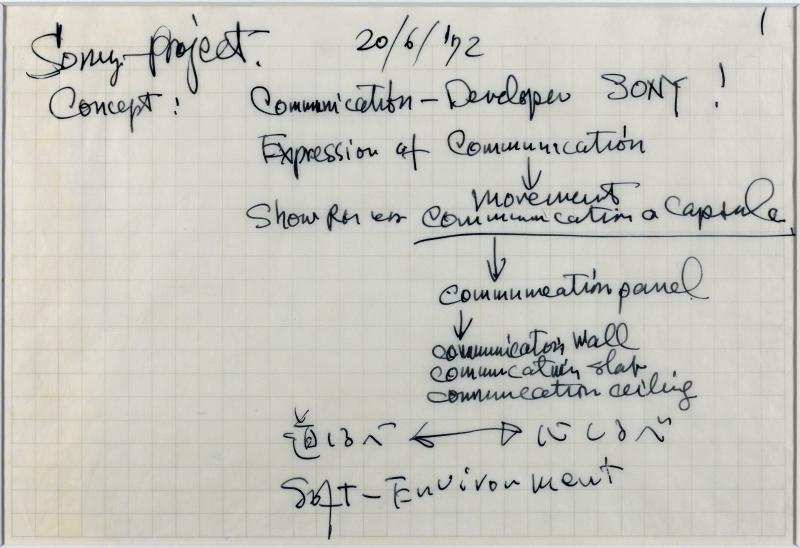 1
Sony-project. 20/6/'72
Concept! Communication-Developer SONY !
Expression of Communication
↓
movement
Show Room communication capsule
↓
communication panel
↓
communication wall
communication slab
communication ceiling
道しるべ ⟷ しるべ
Soft-Environment